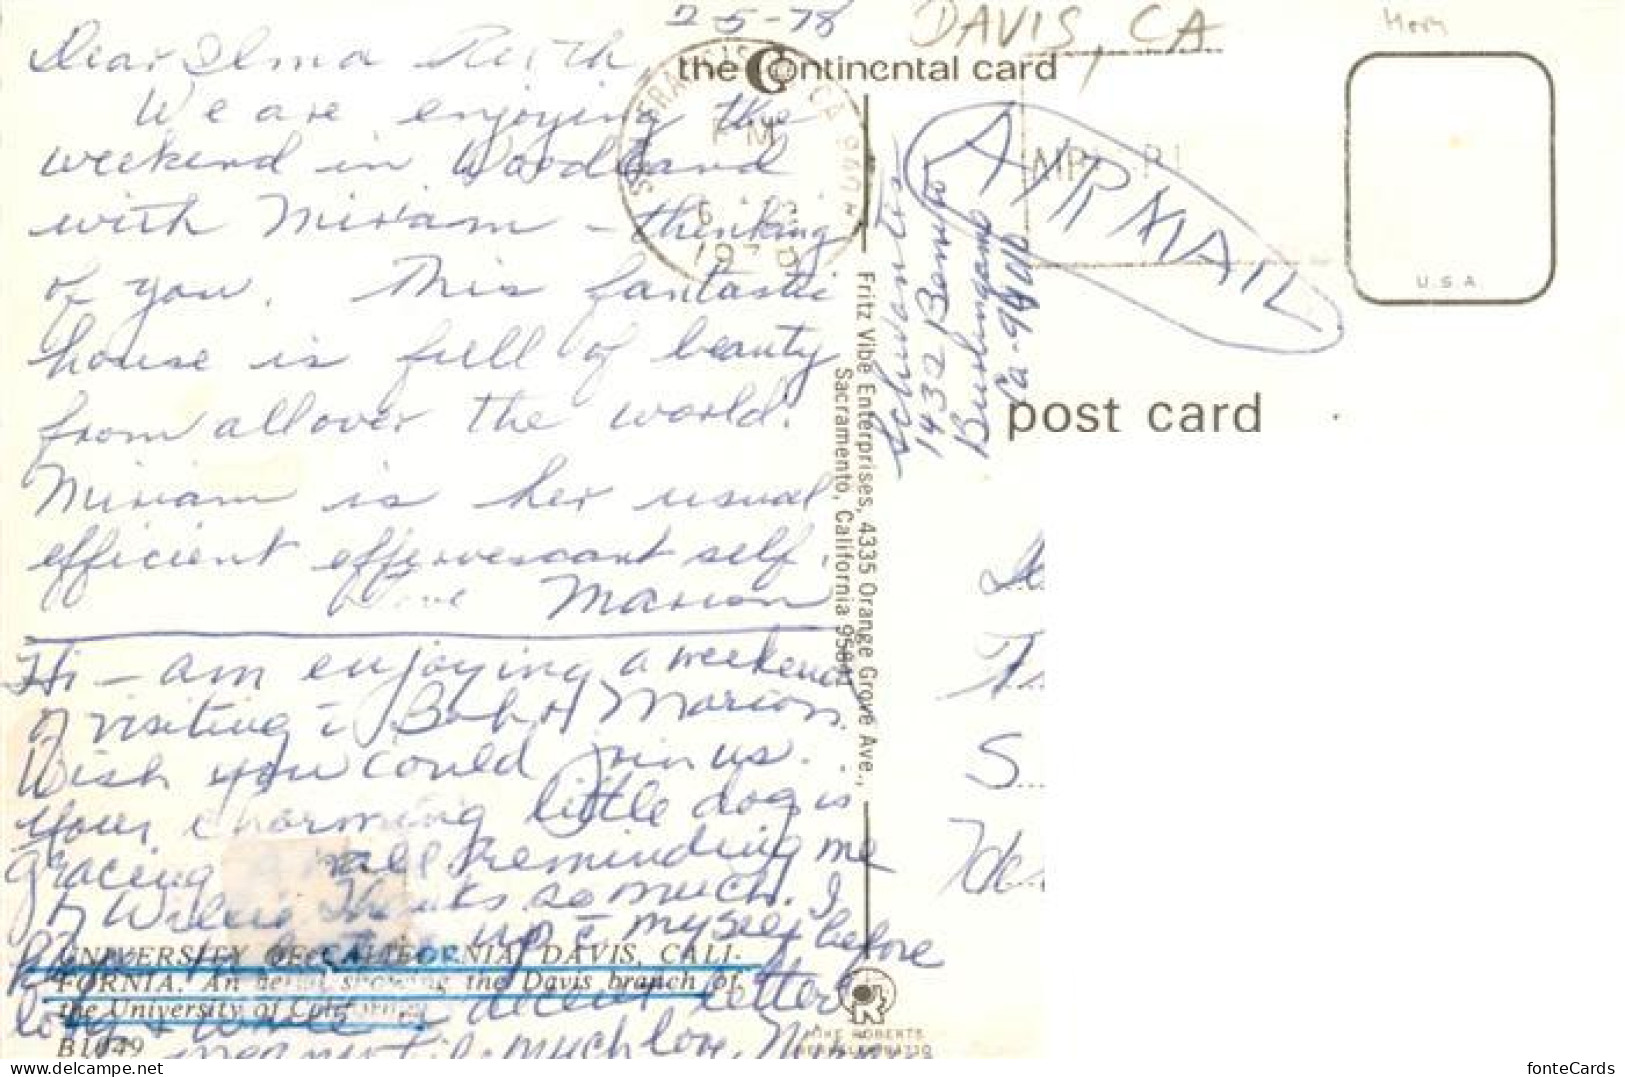 2-5-78
DAVIS, CA
the Continental card
Dear Ilma Reith,
We are enjoying the
weekend in Woodland
with Miriam - thinking
of you. This fantastic
house is full of beauty
from all over the world.
Miriam is her usual
efficient effervescent self.
Love Marion
Hi - am enjoying a weekend
of visiting c̄ Bob & Marion.
Wish you could join us.
Your charming little dog is
gracing wall reminding me
of Thanks so much. I
up c̄ myself before
long & write a decent letter
much love,
UNIVERSITY OF CALIFORNIA, DAVIS, CALI-
FORNIA. An aerial showing the Davis branch of
the University of California
B1049
SAN FRANCISCO CA 940
PM
6
1978
Fritz Vibe Enterprises, 4335 Orange Grove Ave.,
Sacramento, California 95841
1432
AIR MAIL
U.S.A.
post card
S
MIKE ROBERTS
BERKELEY
fonteCards